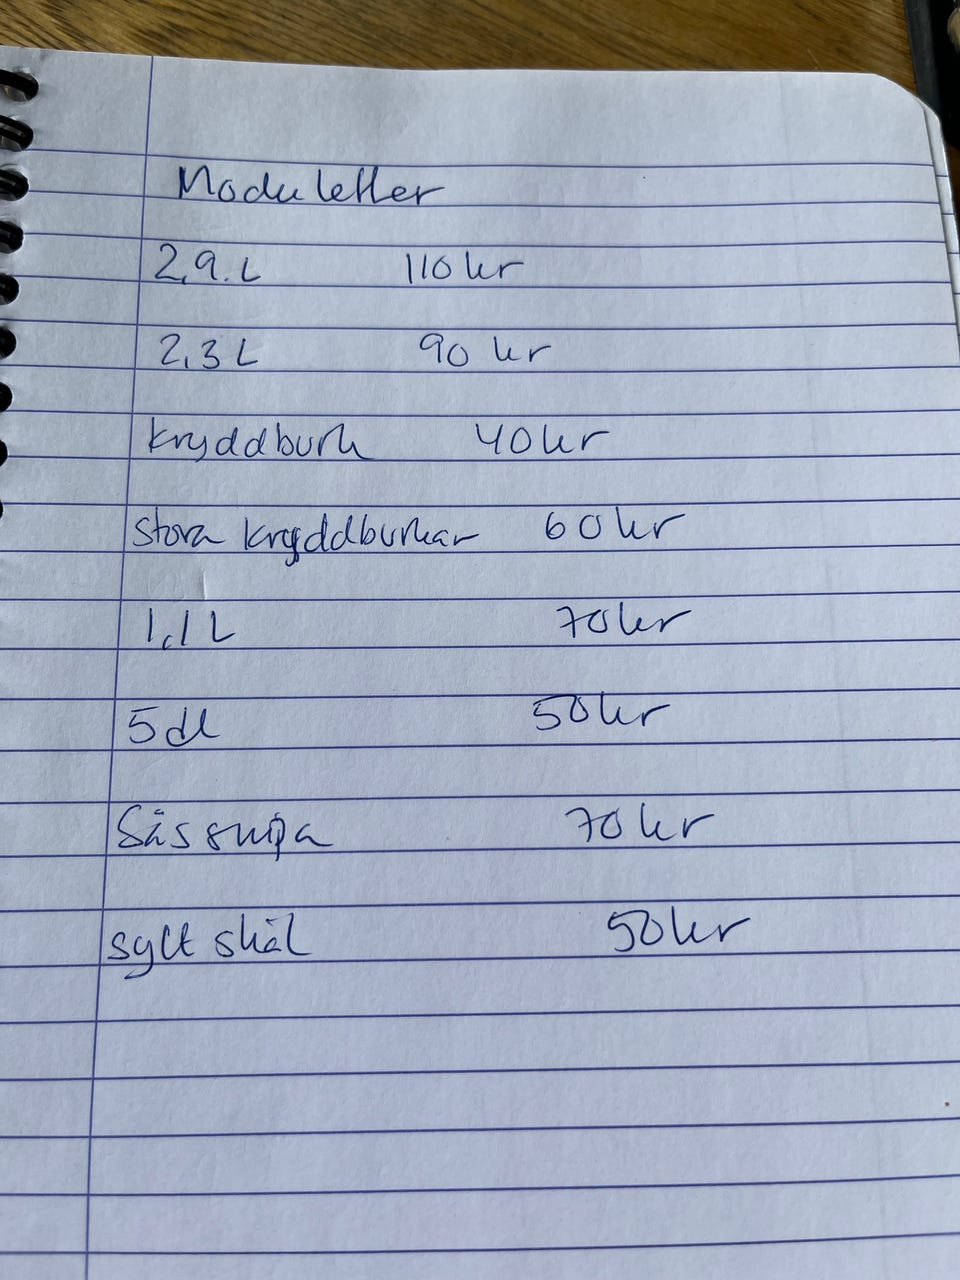 Moduletter
2,9.L 110 kr
2,3 L 90 kr
kryddburk 40 kr
stora kryddburkar 60 kr
1,1 L 70 kr
5 dl 50 kr
Såssnipa 70 kr
sylt skål 50 kr